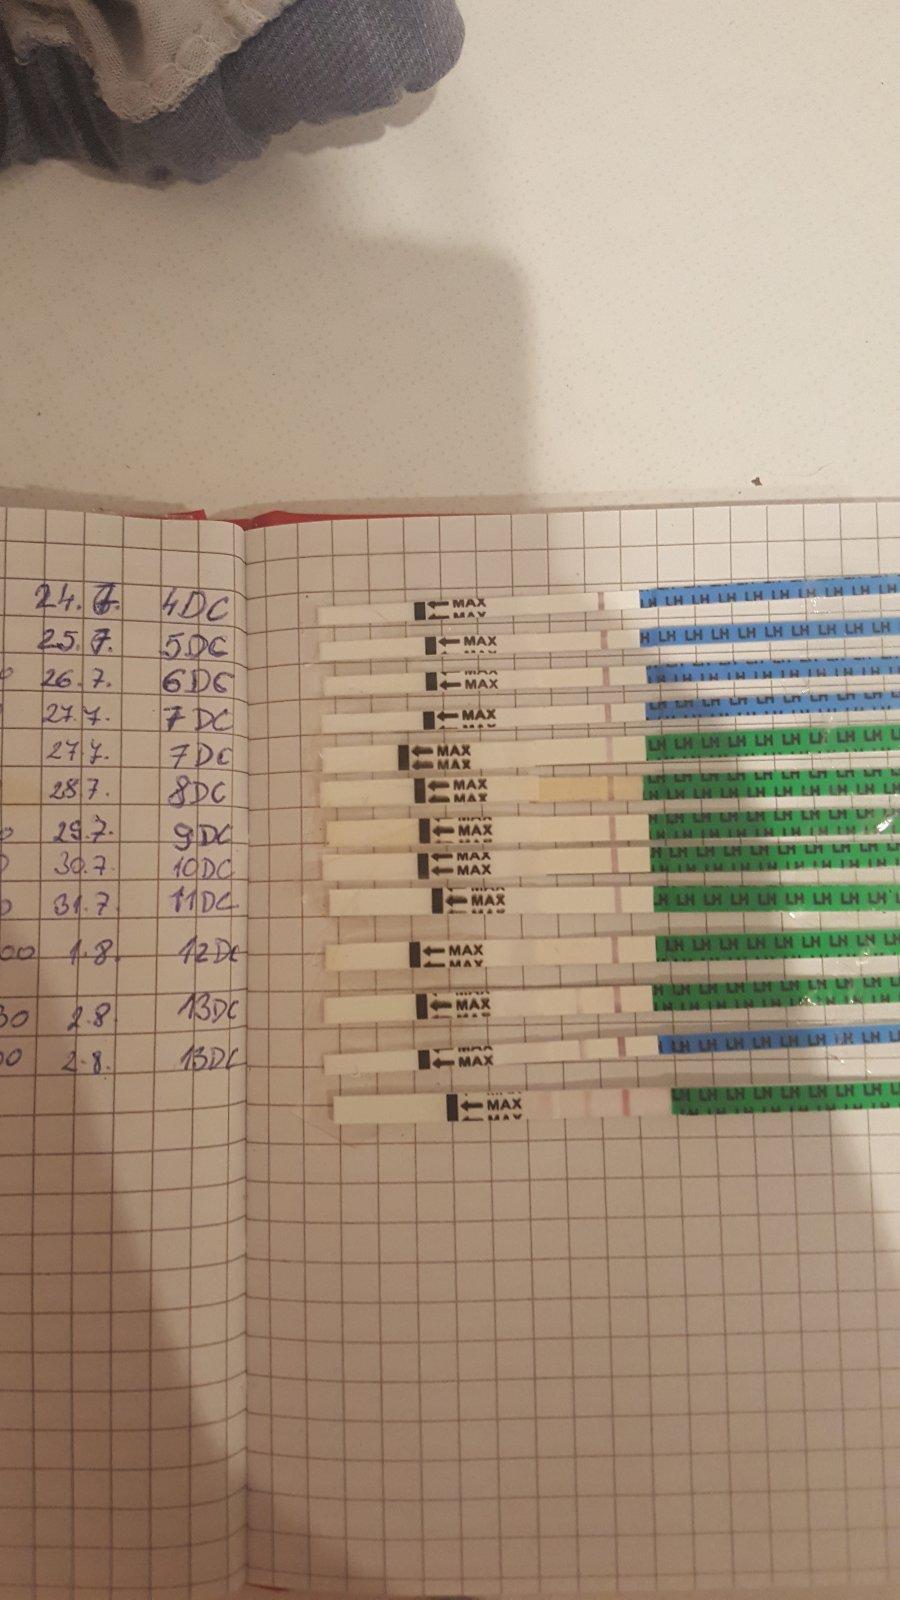 24.7. 4DC MAX LH LH LH LH LH LH LH LH LH
25.7. 5DC MAX LH LH LH LH LH LH LH LH LH
26.7. 6DC MAX LH LH LH LH LH LH LH LH LH
27.7. 7DC MAX LH LH LH LH LH LH LH LH LH
27.7. 7DC MAX MAX LH LH LH LH LH LH LH LH LH
28.7. 8DC MAX MAX LH LH LH LH LH LH LH LH LH
29.7. 9DC MAX LH LH LH LH LH LH LH LH LH
30.7. 10DC MAX MAX LH LH LH LH LH LH LH LH LH
31.7. 11DC MAX LH LH LH LH LH LH LH LH LH
00 1.8. 12DC MAX LH LH LH LH LH LH LH LH LH
30 2.8 13DC MAX LH LH LH LH LH LH LH LH LH
00 2.8. 13DC MAX LH LH LH LH LH LH LH LH
MAX LH LH LH LH LH LH LH LH